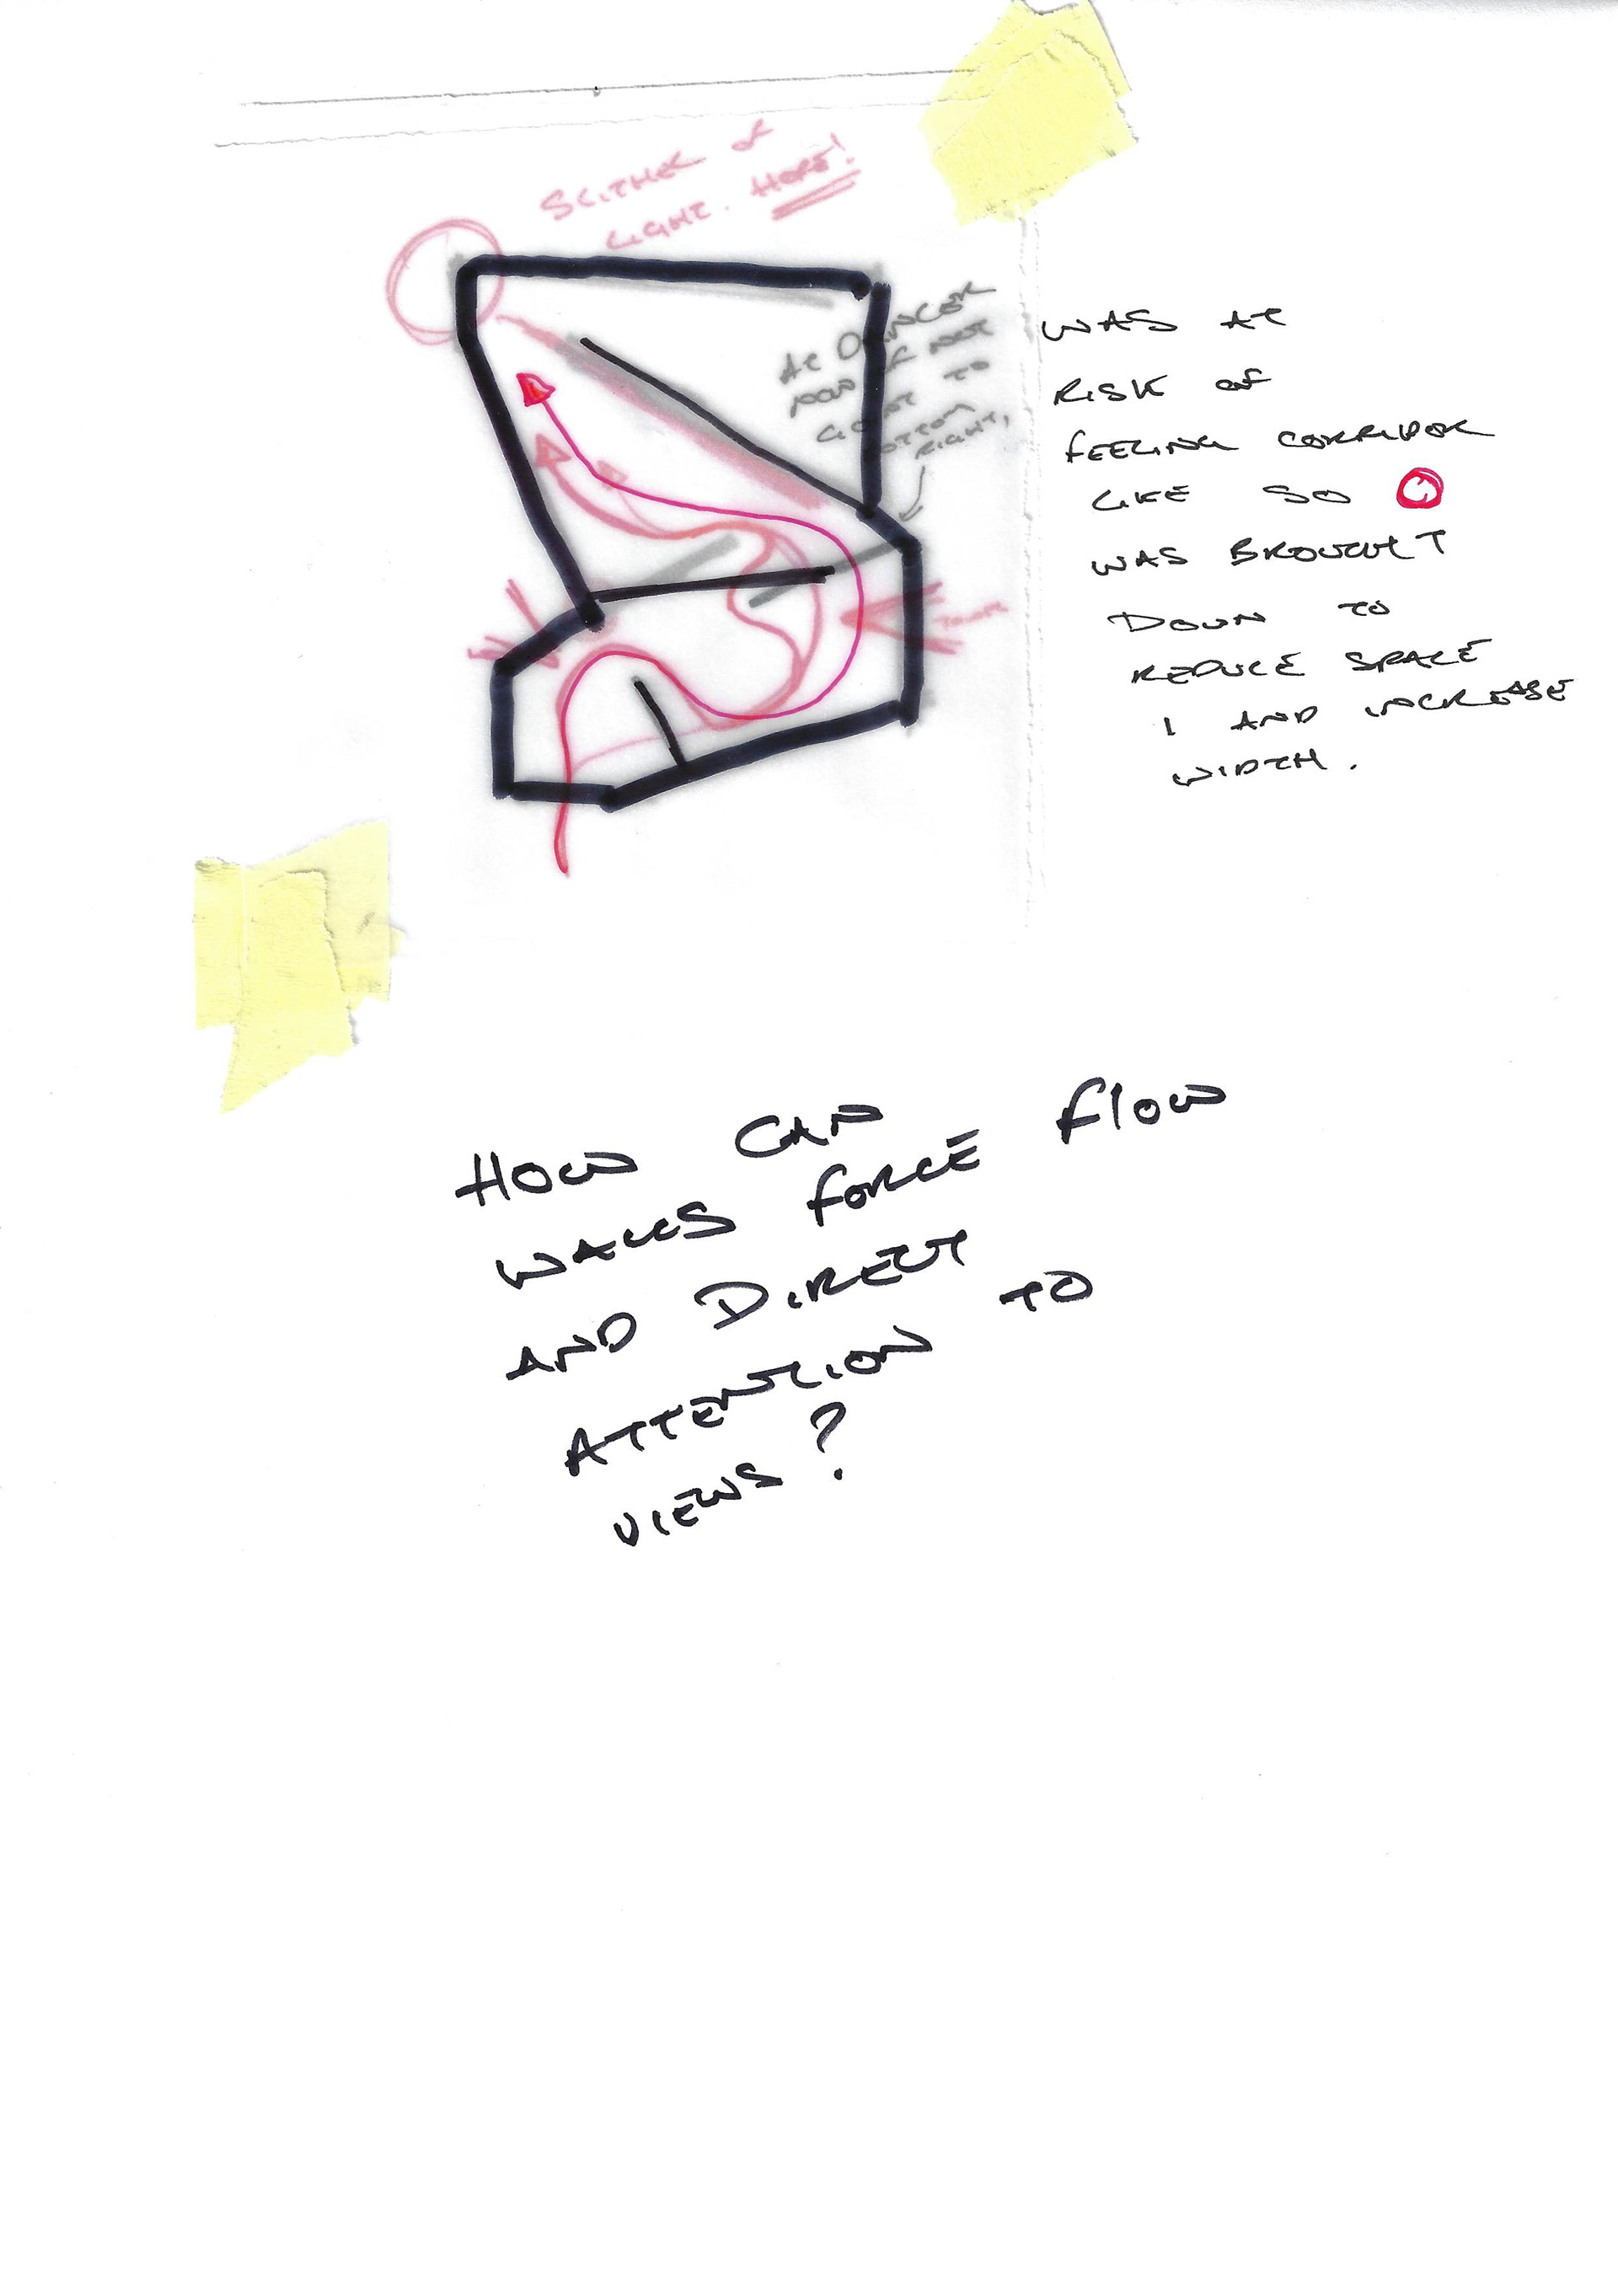 SLITHER of
LIGHT. HOPE!
At DANGER
NOW IF NOT
TO
BOTTOM
RIGHT,
WAS AT
RISK of
FEELING CORRIDOR
LIKE SO
WAS BROUGHT
DOWN TO
REDUCE SPACE
1 AND INCREASE
WIDTH.
HOW CAN
WALLS FORCE FLOW
AND DIRECT
ATTENTION TO
VIEWS?